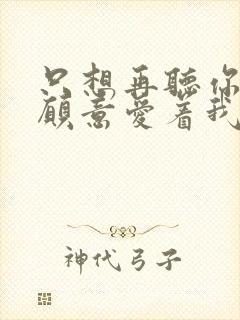 只想再聽你
願意愛着我
神代弓子